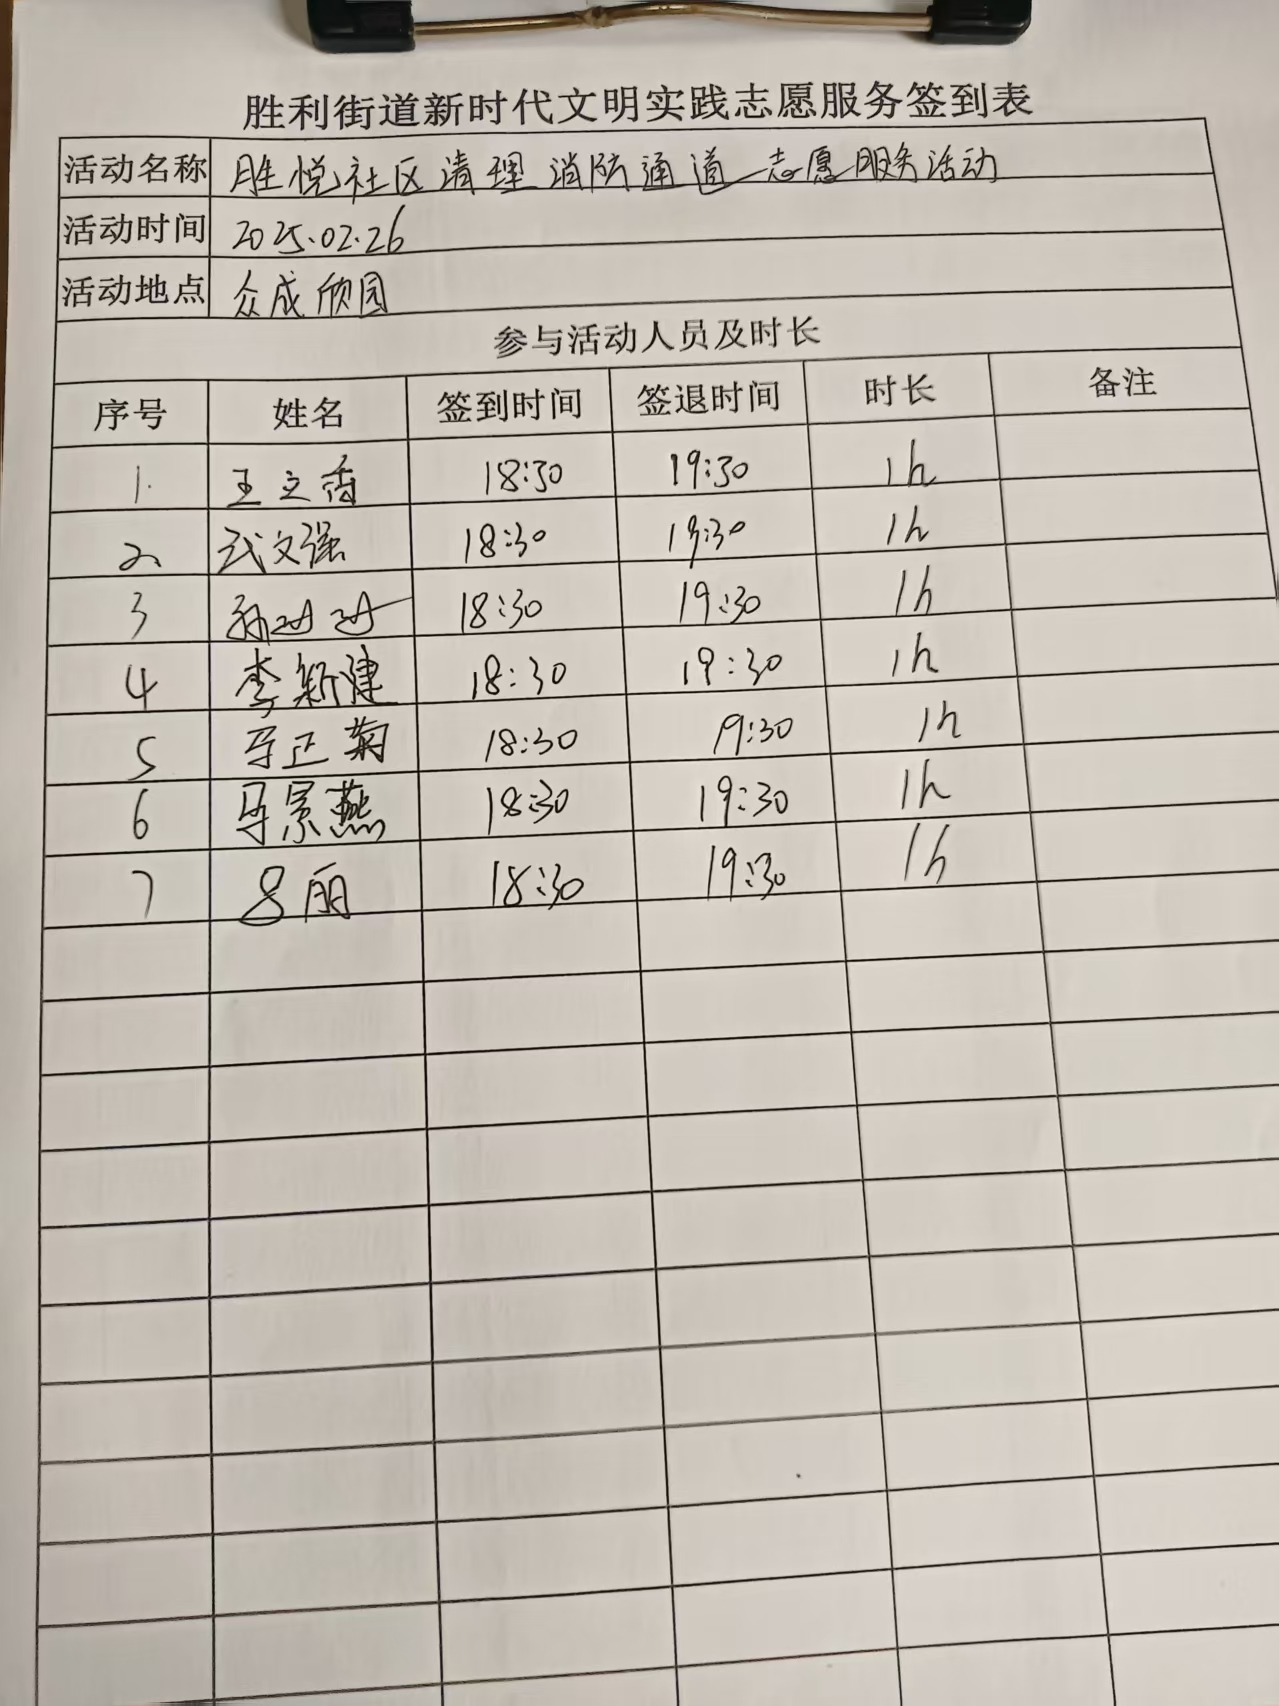 胜利街道新时代文明实践志愿服务签到表
活动名称 胜悦社区清理消防通道志愿服务活动
活动时间 2025.02.26
活动地点 众成欣园
参与活动人员及时长
序号 姓名 签到时间 签退时间 时长 备注
1. 王立香 18:30 19:30 1h
2 武文强 18:30 19:30 1h
3 孙 18:30 19:30 1h
4 李新健 18:30 19:30 1h
5 马正菊 18:30 19:30 1h
6 马景燕 18:30 19:30 1h
7 吕丽 18:30 19:30 1h